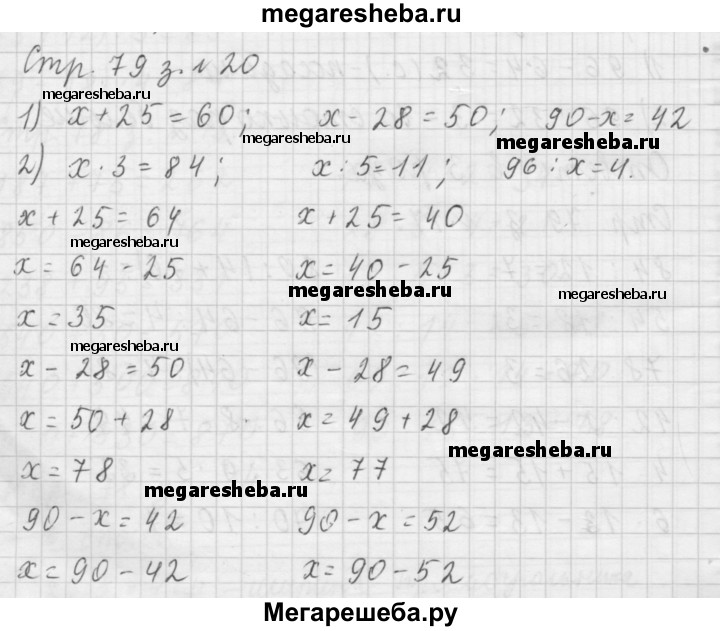 megaresheba.ru
Стр. 79 з. № 20
megaresheba.ru
1) x + 25 = 60; x - 28 = 50; 90 - x = 42
megaresheba.ru megaresheba.ru
2) x · 3 = 84; x : 5 = 11; 96 : x = 4.
x + 25 = 64 x + 25 = 40
megaresheba.ru
x = 64 - 25 x = 40 - 25
megaresheba.ru megaresheba.ru
x = 35 x = 15
megaresheba.ru
x - 28 = 50 x - 28 = 49
x = 50 + 28 x = 49 + 28
megaresheba.ru
x = 78 x = 77
megaresheba.ru
90 - x = 42 90 - x = 52
x = 90 - 42 x = 90 - 52
Мегарешеба.ру